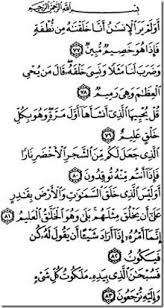 بِسْمِ اللَّهِ الرَّحْمَٰنِ الرَّحِيمِ
أَوَلَمْ يَرَ الْإِنسَٰنُ أَنَّا خَلَقْنَٰهُ مِن نُّطْفَةٍ
فَإِذَا هُوَ خَصِيمٌ مُّبِينٌ ٧٧
وَضَرَبَ لَنَا مَثَلًا وَنَسِيَ خَلْقَهُۥ قَالَ مَن يُحْيِ
الْعِظَٰمَ وَهِيَ رَمِيمٌ ٧٨
قُلْ يُحْيِيهَا الَّذِي أَنشَأَهَا أَوَّلَ مَرَّةٍ وَهُوَ بِكُلِّ
خَلْقٍ عَلِيمٌ ٧٩
الَّذِي جَعَلَ لَكُم مِّنَ الشَّجَرِ الْأَخْضَرِ نَارًا
فَإِذَا أَنتُم مِّنْهُ تُوقِدُونَ ٨٠
أَوَلَيْسَ الَّذِي خَلَقَ السَّمَٰوَٰتِ وَالْأَرْضَ بِقَٰدِرٍ
عَلَىٰ أَن يَخْلُقَ مِثْلَهُم بَلَىٰ وَهُوَ الْخَلَّٰقُ الْعَلِيمُ ٨١
إِنَّمَا أَمْرُهُ إِذَا أَرَادَ شَيْئًا أَن يَقُولَ لَهُۥ كُن
فَيَكُونُ ٨٢
فَسُبْحَٰنَ الَّذِي بِيَدِهِ مَلَكُوتُ كُلِّ شَيْءٍ
وَإِلَيْهِ تُرْجَعُونَ ٨٣